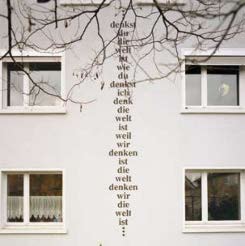 denkst
du
dir
welt
ist
wie
du
denkst
ich
denk
die
welt
ist
weil
wir
denken
ist
die
welt
denken
wir
die
welt
ist
: